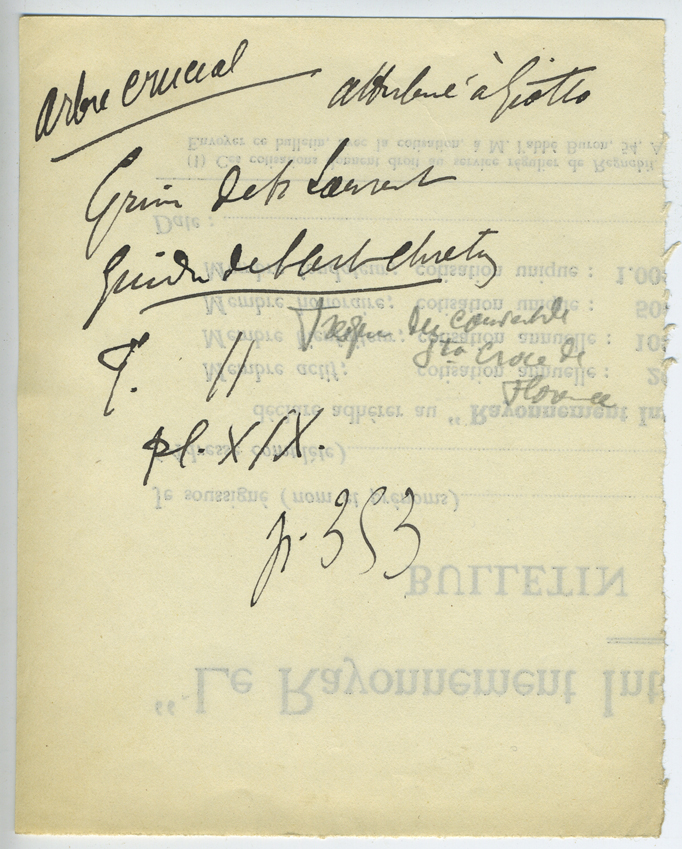 arbre crucial attribué à Giotto
Grim de St Laurent
Guide de l'art chretien
du couvent de
Sta Croce de
Florence
T. II
pl. XIX.
p. 353
"Le Rayonnement Int
BULLETIN
Je soussigné (nom et prénoms)
(Adresse complète)
déclare adhérer au "Rayonnement In
Membre actif; cotisation annuelle :
Membre cotisation annuelle :
Membre honoraire; cotisation unique :
Membre fondateur; cotisation unique : 1.00
Date :
(1) Ces cotisations donnent droit au service régulier de Regnabit
Envoyer ce bulletin, avec la cotisation, à M. l'abbé Buron, 54, A